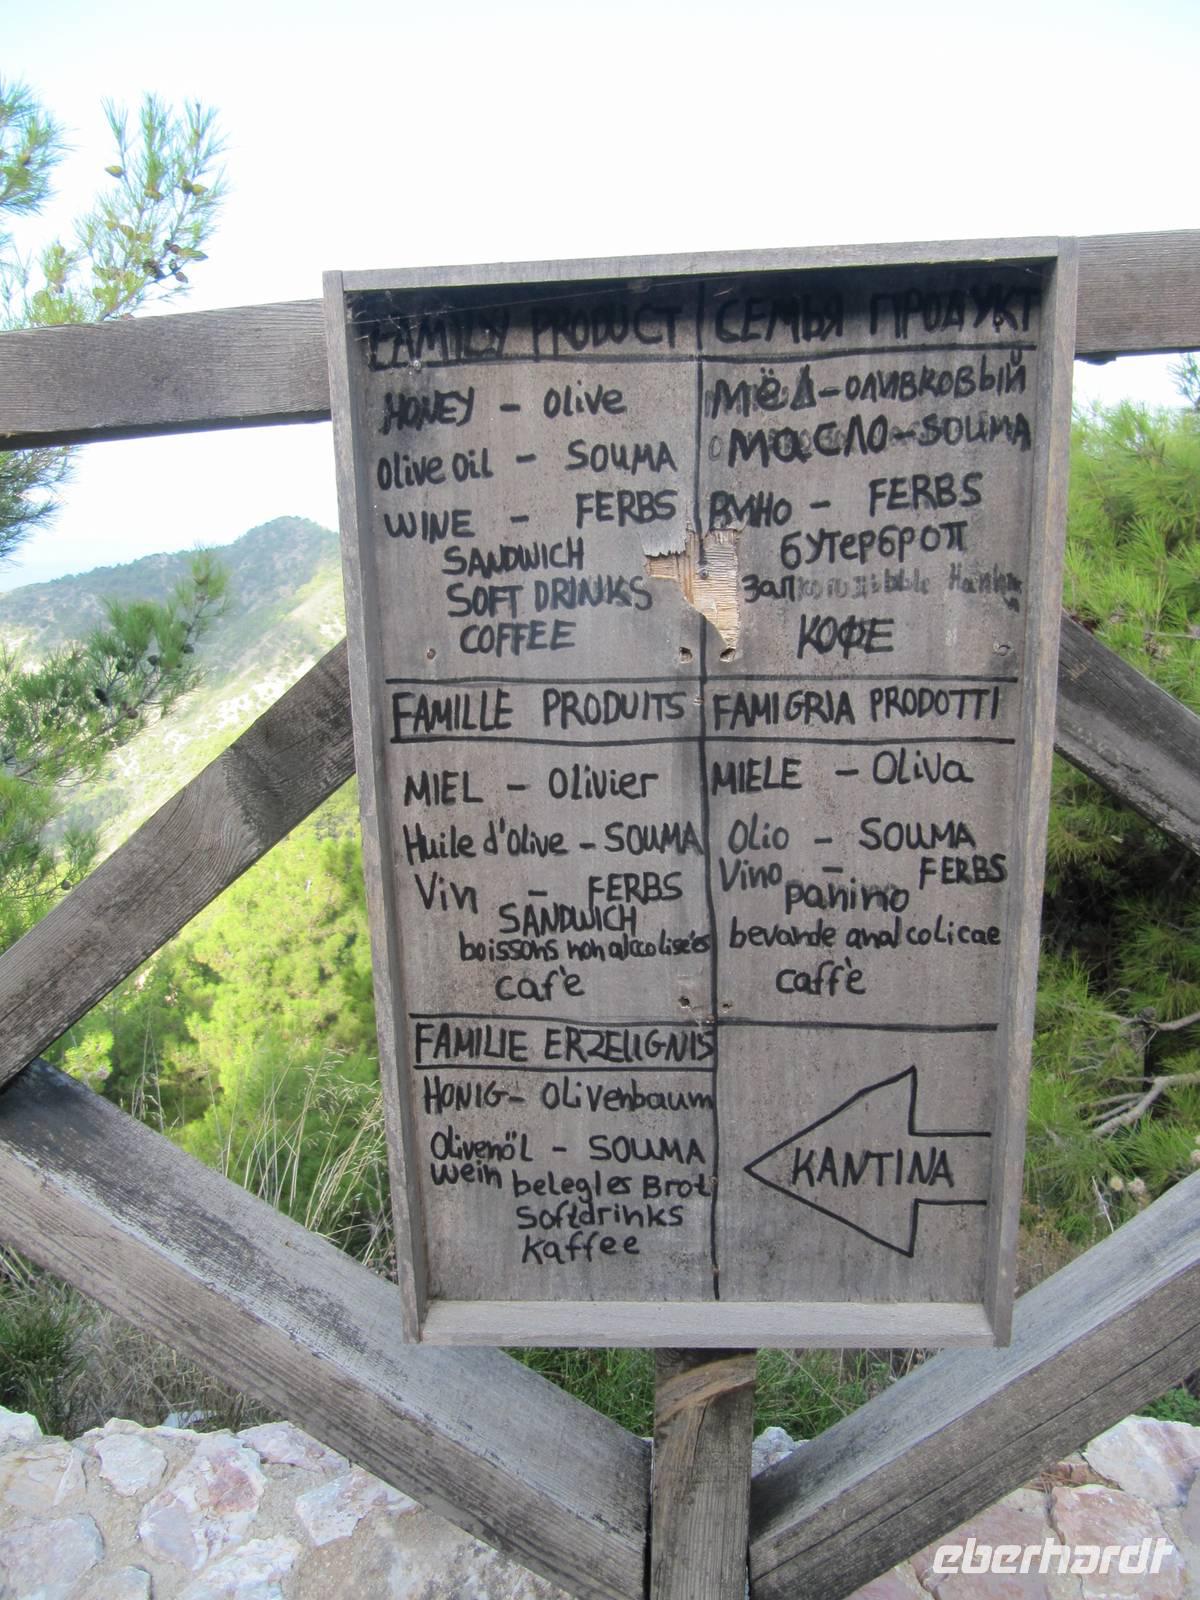 FAMILY PRODUCT
HONEY - Olive
Olive Oil - SOUMA
WINE - FERBS
SANDWICH
SOFT DRINKS
COFFEE
СЕМЬЯ ПРОДУКТ
МЁД - ОЛИВКОВЫЙ
МАСЛО - SOUMA
ВИНО - FERBS
бутерброп
КОФЕ
FAMILLE PRODUITS
MIEL - Olivier
Huile d'Olive - SOUMA
Vin - FERBS
SANDWICH
boissons non alcolisées
cafè
FAMIGRIA PRODOTTI
MIELE - OLiVa
Olio - SOUMA
Vino - FERBS
panino
bevande analcolicae
caffè
FAMILIE ERZEUGNIS
HONIG - Olivenbaum
Olivenöl - SOUMA
wein belegles Brot
Softdrinks
Kaffee
KANTINA
eberhardt